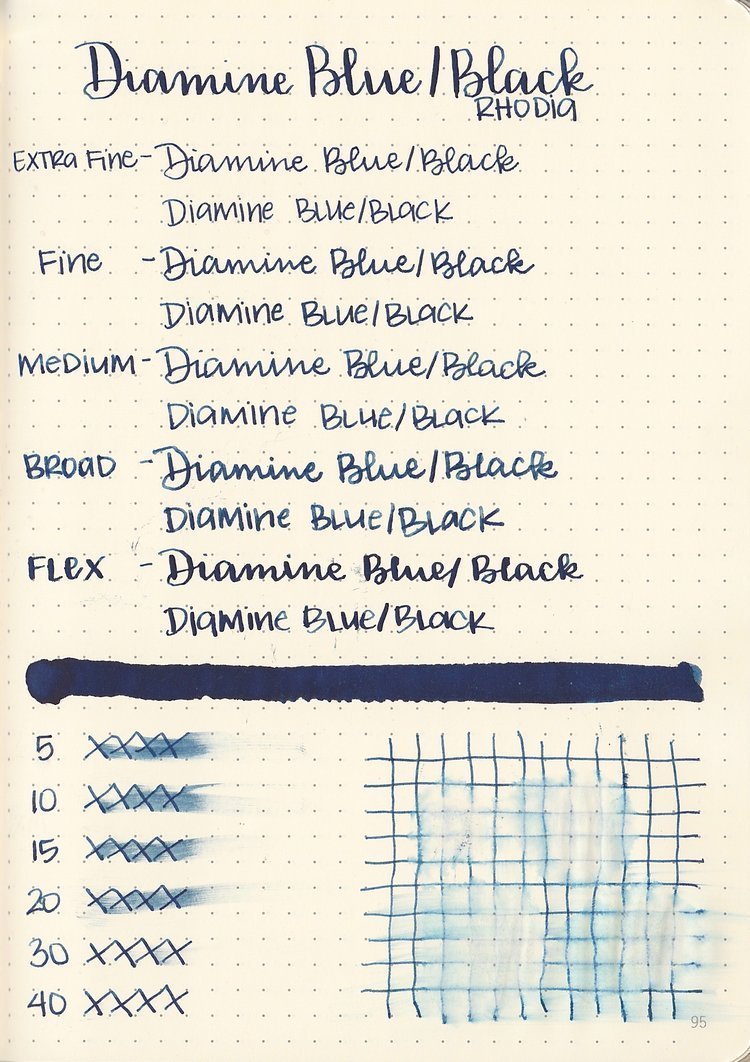 Diamine Blue/Black
RHODIA
EXTRA Fine - Diamine Blue/Black
Diamine BLUe/BLACK
Fine - Diamine Blue/Black
Diamine BLUe/BLACK
MeDIUM - Diamine Blue/Black
Diamine BLUe/BLACK
BROAD - Diamine Blue/Black
Diamine BLUe/BLACK
FLex - Diamine Blue/Black
Diamine BLUe/BLACK
5 XXXX
10 XXXX
15 XXXX
20 XXXX
30 XXXX
40 XXXX
95